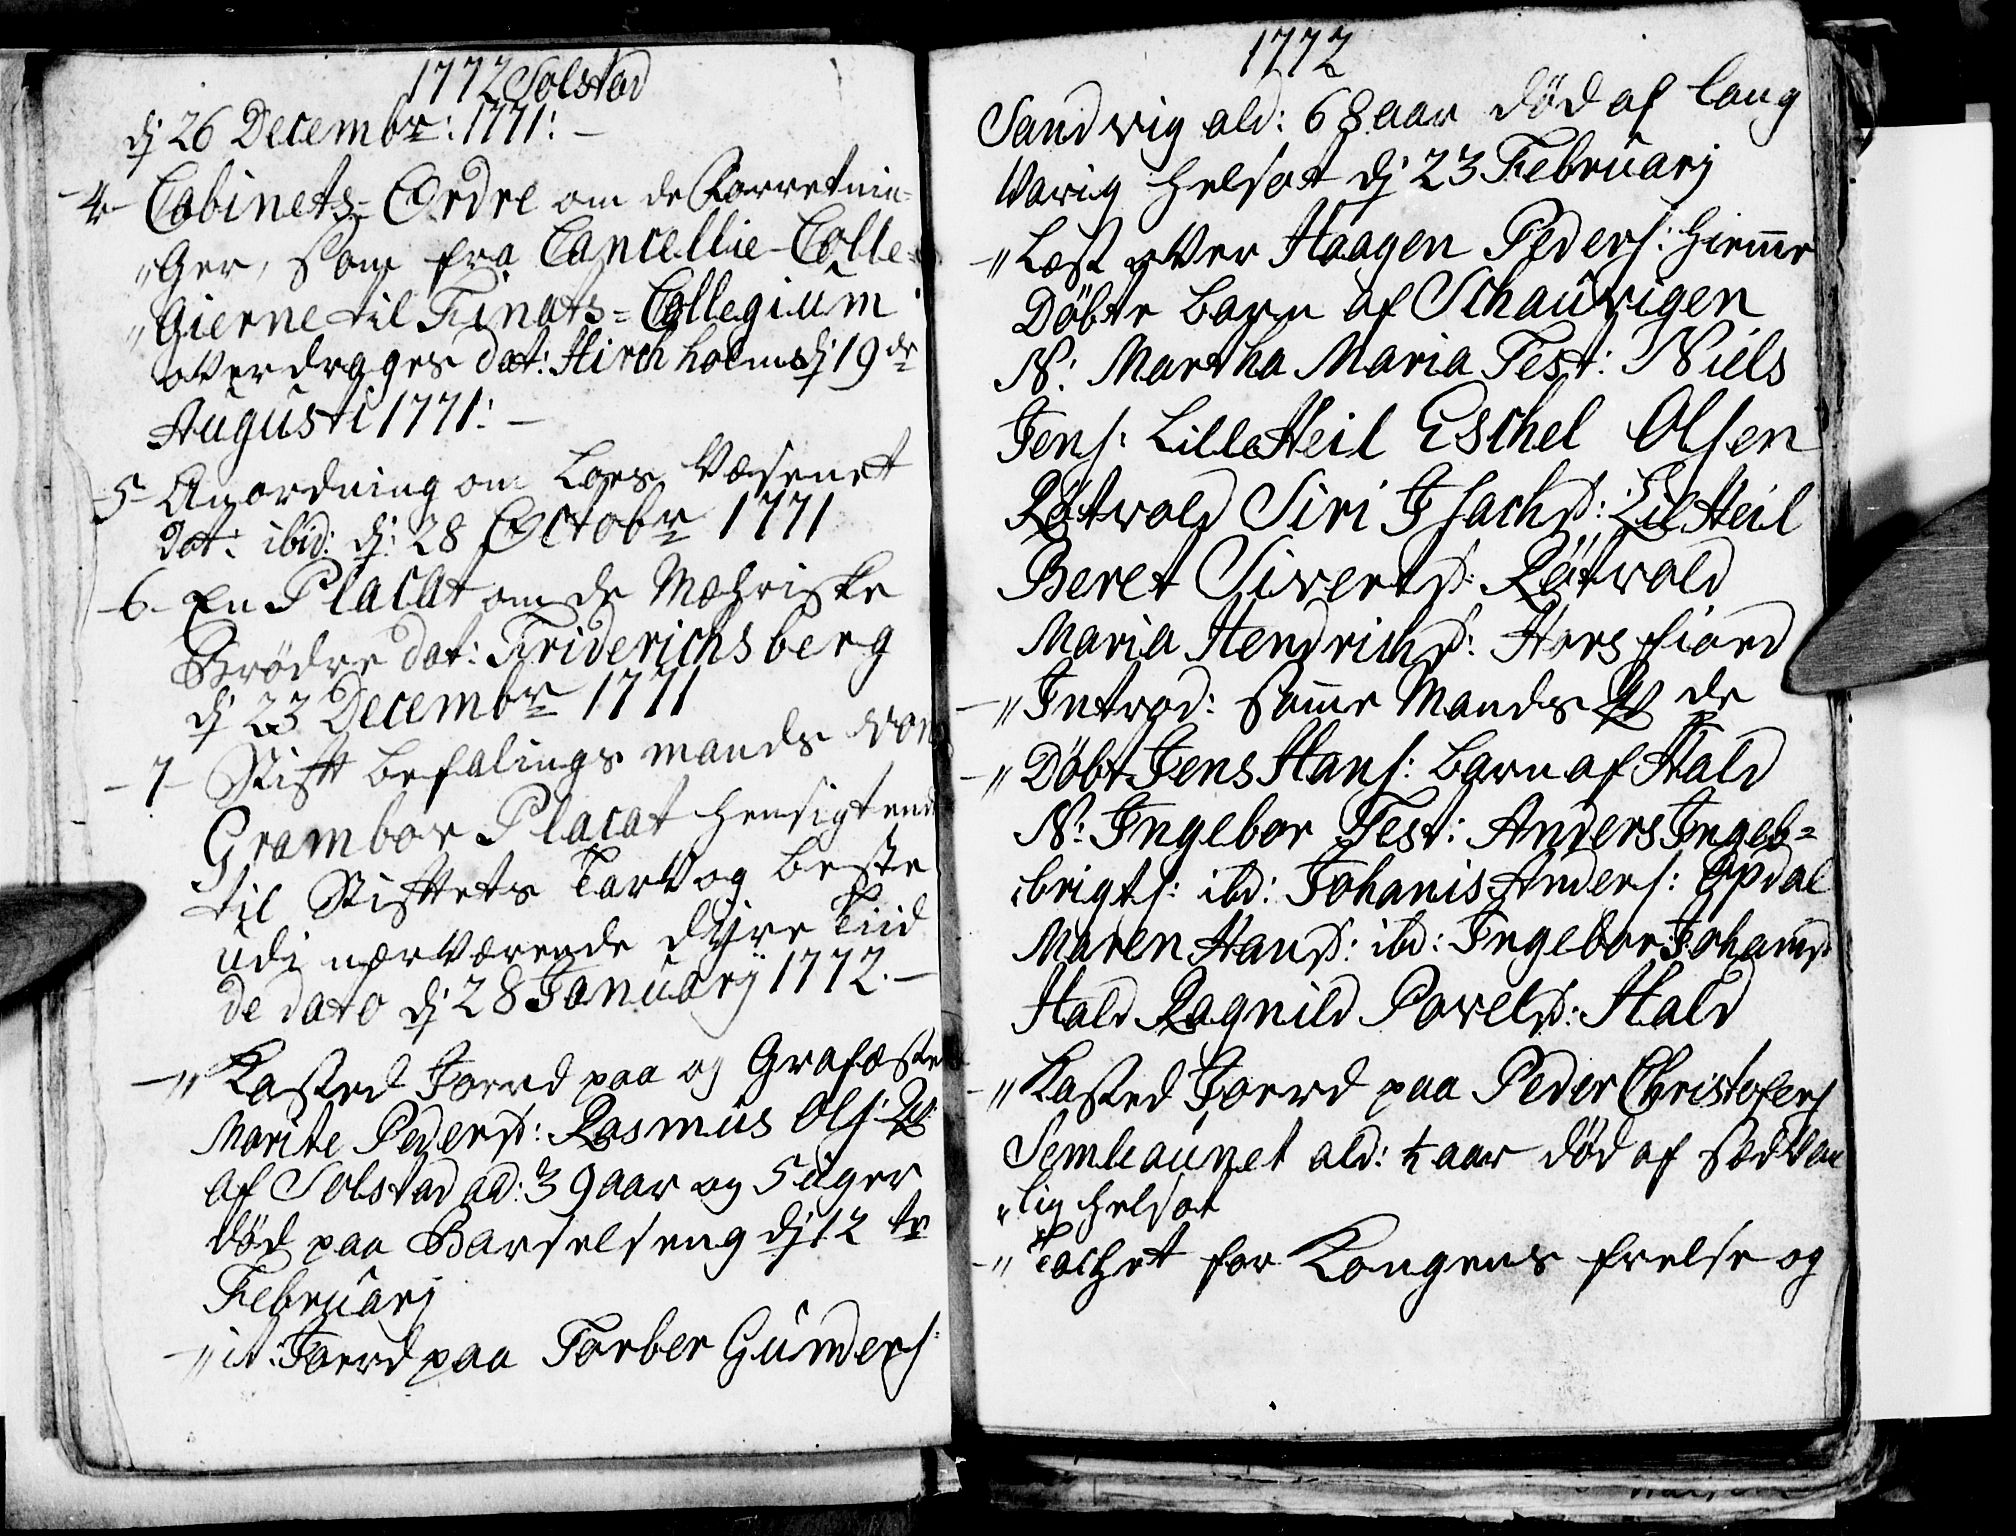 1772 Solstad
dj 26 Decembr: 1771: -
-4- Cabinets-Ordre om de Forretnin-
"ger, som fra Cancellie-Colle-
"Gierne til Finats=Collegium
overdrages dat: Hirchholms dj 19de
Augusti 1771: -
-5- Anordning om Lors Væsenet
dat: ibid: dj: 28 Octobr 1771
-6- En Placat om de Mæhriske
Brödre dat: Friderichsberg
dj 23 Decembr 1771
-7- Stift befalings mands von
Grambov Placat hensigtend
til Stiftets Tarv og beste
udi nærværende dyre Tiid
de dato dj 28 Januarij 1772. -
-" Kasted Joerd paa og Grafæste
Marite Peders: Rasmus Ols:
af Solstad ald: 39 aar og 5 uger
död paa Barselseng dj 12te
Februarj
-" it: Joerd paa Torber Gunders:
1772
Sandvig ald: 68 aar död af lang
Varig helsot dj 23 Februarj
-" Læst over Haagen Peders: hieme
Döbte barn af Schaŭvigen
N: Martha Maria Test: Niels
Jens: Lille Heil Eschel Olsen
Rötvold Siri Isachsd: Lil Heil
Beret Sivertsd: Rötvold
Maria Hendrichsd: Hersfiord
-" Introd: samme Mands
-" Döbt Jens Hans: barn af Hald
N: Ingebor Test: Anders Ingeb=
brigts: ibd: Johanis Anders: Opdal
Maren Hansd: ibd: Ingebor Johansd:
Hald Ragnild Povelsd: Hald
-" Kasted Joerd paa Peder Christofers
Semhaŭnet ald: ½ aar död af sædvan
"lig helsot
-" Tachet for Kongens frelse og